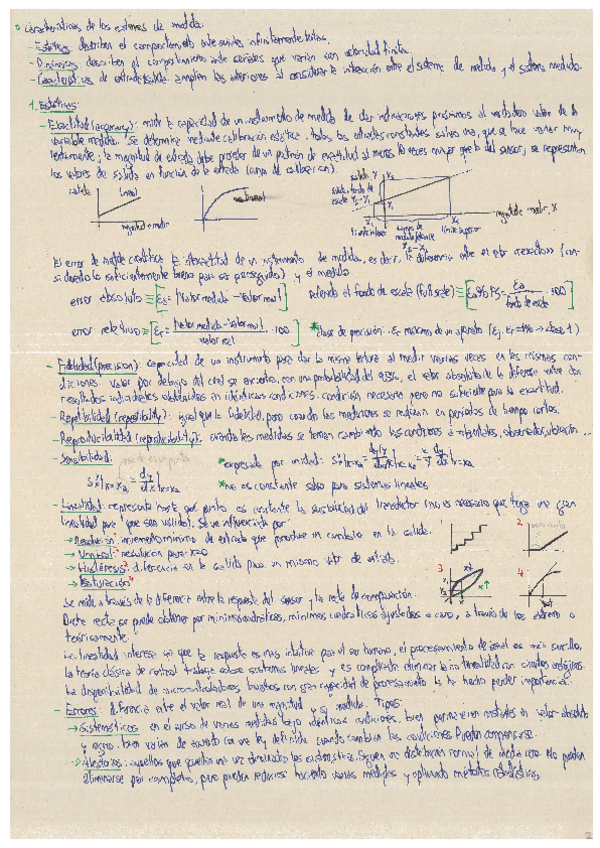 Características de los sistemas de medida.
- Estáticas: describen el comportamiento ante señales infinitamente lentas.
- Dinámicas: describen el comportamiento ante señales que varían con velocidad finita.
- de entrada/salida: amplían las anteriores al considerar la interacción entre el sistema de medida y el sistema medido.
1. Estáticas:
- Exactitud (accuracy): mide la capacidad de un instrumento de medida de dar indicaciones próximas al verdadero valor de la
variable medida. Se determina mediante calibración estática: todas las entradas constantes salvo una, que se hace variar muy
lentamente; la magnitud de entrada debe proceder de un patrón de exactitud al menos 10 veces mayor que la del sensor; se representan
los valores de salida en función de la entrada (curva de calibración).
salida lineal
magnitud a medir
no lineal
salida Y
Y2
salida fondo de
escala Y2-Y1
Y1
X1 X2 magnitud a medir, X
límite inferior campo de medida límite superior
X2-X1
El error de medida cuantifica la inexactitud de un instrumento de medida, es decir, la diferencia entre el valor "exacto" (con-
siderado lo suficientemente bueno para ser perseguido) y el medido.
error absoluto ≡ [εa = |Valor medida - Valor real|] Referido al fondo de escala (full scale) ≡ [εa% FS = εa / fondo de escala · 100]
error relativo ≡ [εr = |Valor medida - Valor real| / valor real · 100] *clase de precisión: εr máximo de un aparato (Ej. εr=1% → clase 1)
- Fidelidad (precision): capacidad de un instrumento para dar la misma lectura al medir varias veces en las mismas con-
diciones. Valor por debajo del cual se encuentra, con una probabilidad del 95%, el valor absoluto de la diferencia entre dos
resultados individuales obtenidos en idénticas condiciones. Condición necesaria pero no suficiente para la exactitud.
- Repetibilidad (repeatibility): igual que la fidelidad, pero cuando las mediciones se realizan en periodos de tiempo cortos.
- Reproducibilidad (reproducibility): cuando las medidas se toman cambiando las condiciones ambientales, observador, ubicación...
- Sensibilidad:
S|x=xa = dy/dx|x=xa *expresada por unidad:
*no es constante salvo para sistemas lineales
- Linealidad: representa hasta que punto es constante la sensibilidad del transductor (no es necesario que tenga una gran
linealidad para que sea válido). Se ve influenciada por:
→ Resolución¹: incremento mínimo de entrada que produce un cambio en la salida.
→ Umbral²: resolución para x=0
→ Histéresis³: diferencia en la salida para un mismo valor de entrada.
→ Saturación⁴
1 2
3 4
Se mide a través de la diferencia entre la respuesta del sensor y la recta de comparación.
Dicha recta se puede obtener por mínimos cuadráticos, mínimos cuadráticos ajustados a cero, a través de los extremos o
teóricamente.
La linealidad interesa ya que la respuesta es más intuitiva por el ser humano, el procesamiento de señal es más sencillo,
la teoría clásica de control trabaja sobre sistemas lineales y es complicado eliminar la no linealidad con circuitos analógicos.
La disponibilidad de microcontroladores baratos con gran capacidad de procesamiento la ha hecho perder importancia.
- Errores: diferencia entre el valor real de una magnitud y su medida. Tipos:
→ Sistemáticos: en el curso de varias medidas bajo idénticas condiciones, bien permanecen constantes en valor absoluto
y signo, bien varían de acuerdo con una ley definida cuando cambian las condiciones. Pueden compensarse.
→ Aleatorios: aquellos que quedan una vez eliminados los sistemáticos. Siguen una distribución normal de media cero. No pueden
eliminarse por completo, pero pueden reducirse haciendo varias medidas y aplicando métodos estadísticos.
2